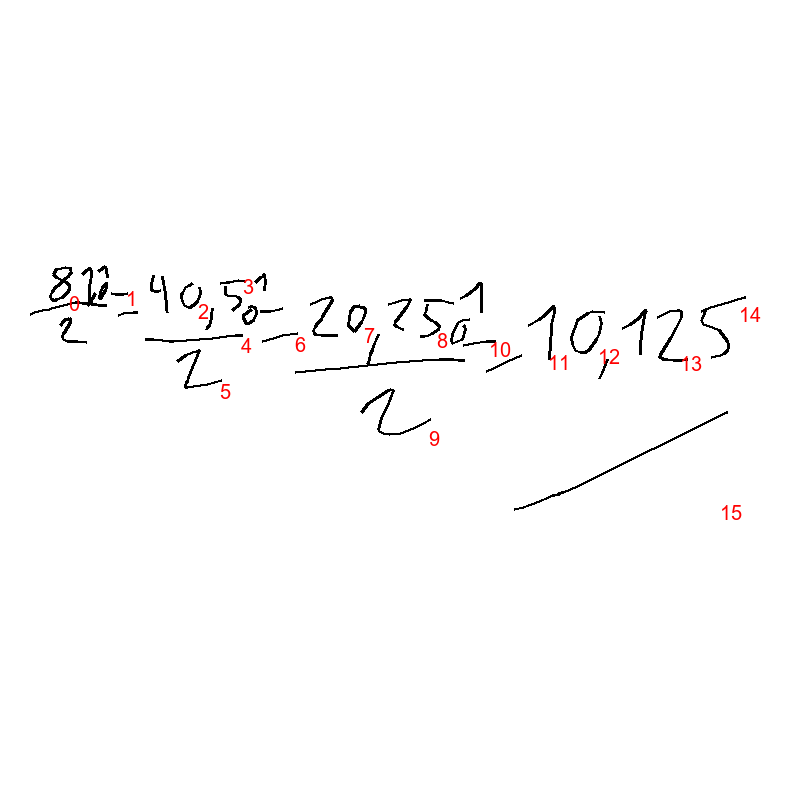 81/2 = 40,5/2 = 20,25/2 = 10,125
0 1 2 3 4 5 6 7 8 9 10 11 12 13 14 15